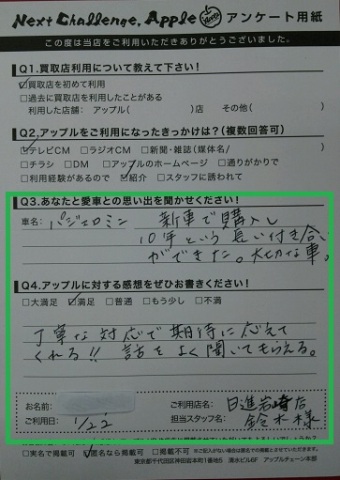 Next Challenge, Apple アンケート用紙
この度は当店をご利用いただきありがとうございました。
Q1.買取店利用について教えて下さい!
☑買取店を初めて利用
□過去に買取店を利用したことがある
利用した店舗：アップル( )店 その他( )
Q2.アップルをご利用になったきっかけは？(複数回答可)
☑テレビCM □ラジオCM □新聞・雑誌(媒体名/ )
□チラシ □DM □アップルのホームページ □通りがかりで
□利用経験があるので ☑紹介 □スタッフに誘われて
Q3.あなたと愛車との思い出を聞かせください!
車名： パジェロミニ 新車で購入し
10年という長い付き合い
ができた。大切な車。
Q4.アップルに対する感想をぜひお書きください!
□大満足 ☑満足 □普通 □もう少し □不満
丁寧な対応で期待に応えて
くれる!! 話をよく聞いてもらえる。
お名前:
ご利用店名: 日進岩崎店
ご利用日: 1/22
担当スタッフ名: 鈴木様
□実名で掲載可 ☑匿名なら掲載可 □掲載不可
東京都千代田区神田岩本町1番地5 清水ビル6F アップルチェーン本部